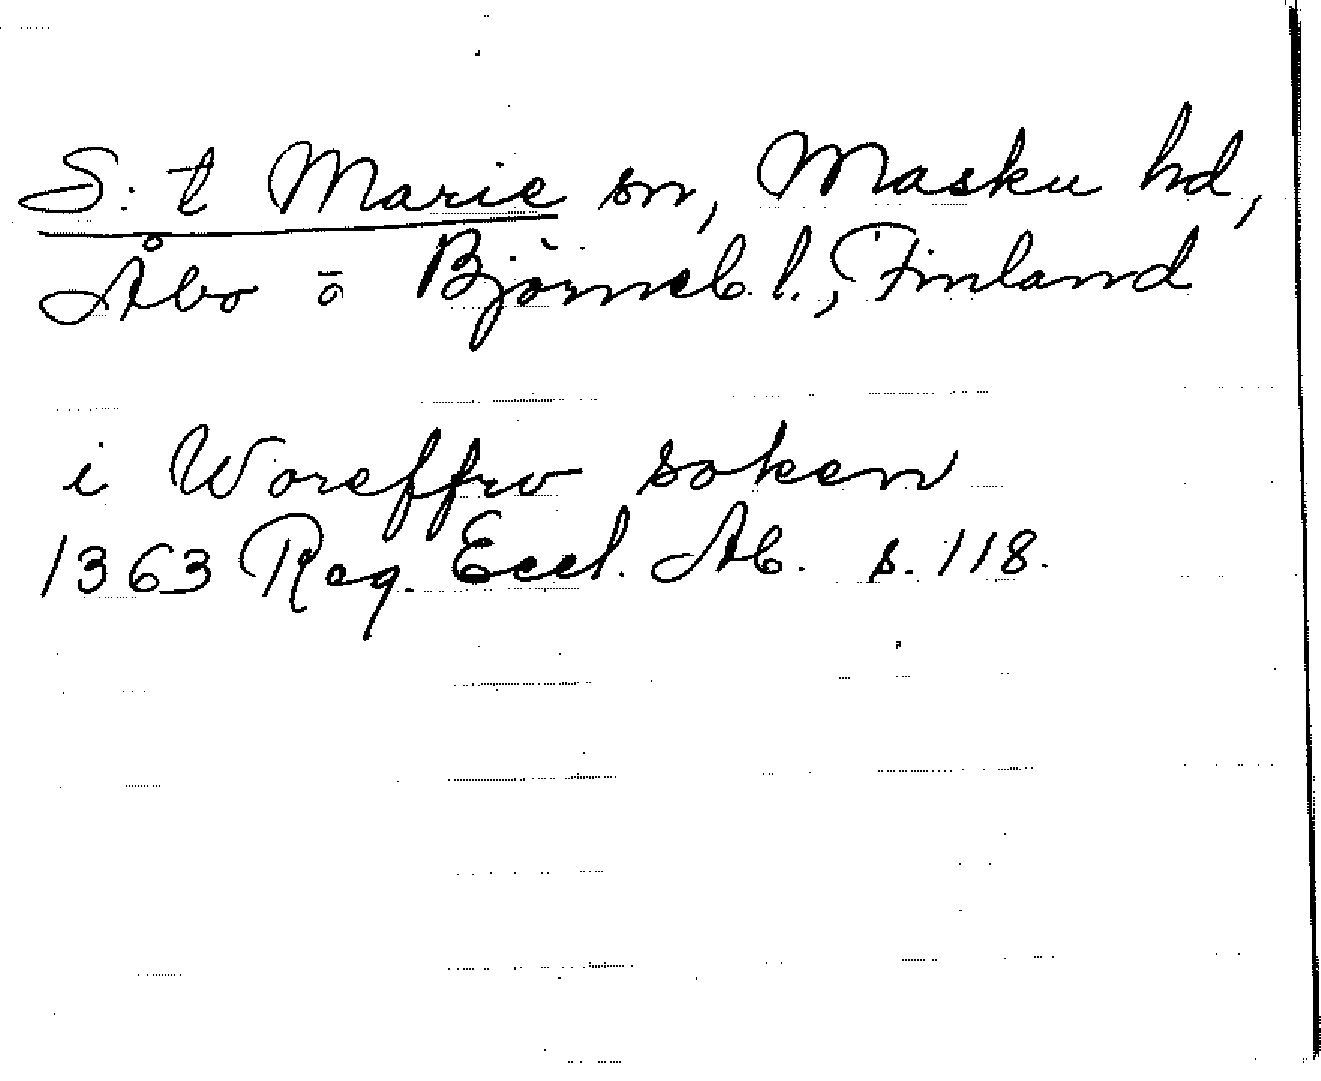 S:t Marie sn, Masku hd,
Åbo o Björneb. l., Finland
i Woreffrv soken
1363 Reg. Eccl. Ab. s. 118.